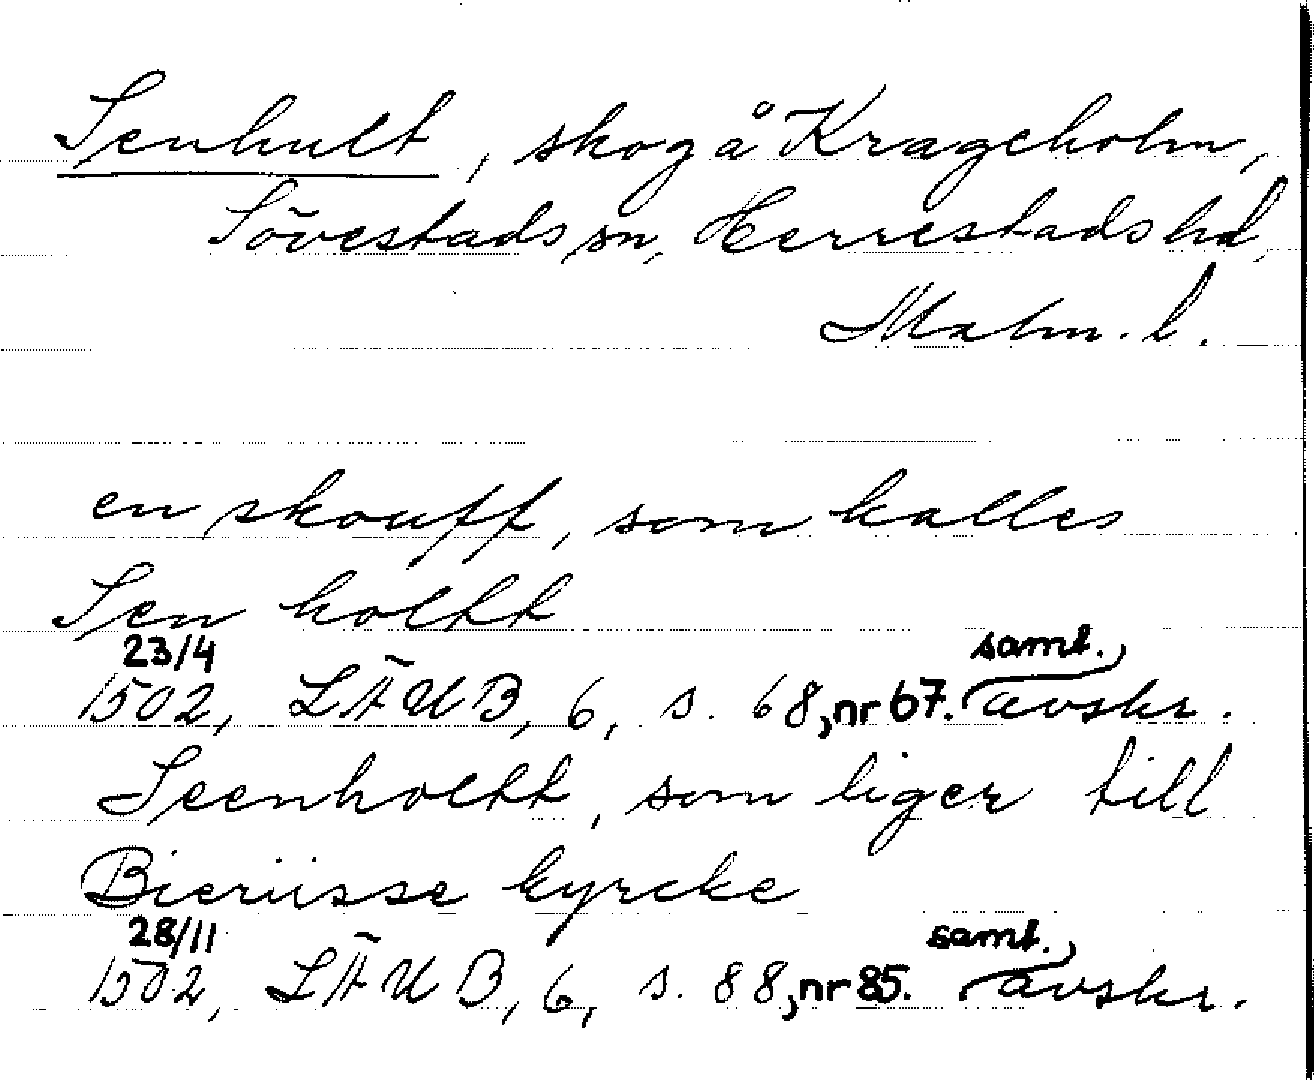 Senhult, skog å Krageholm,
Sövestads sn, Herrestads hd,
Malm. l.
en skouff, som kalles
Sen holtt
23/4 samt.
1502, LÄUB, 6, s. 68, nr 67. avskr.
Seenholtt, som liger till
Bieriisse kyrcke
28/11 samt.
1502, LÄUB, 6, s. 88, nr 85. avskr.